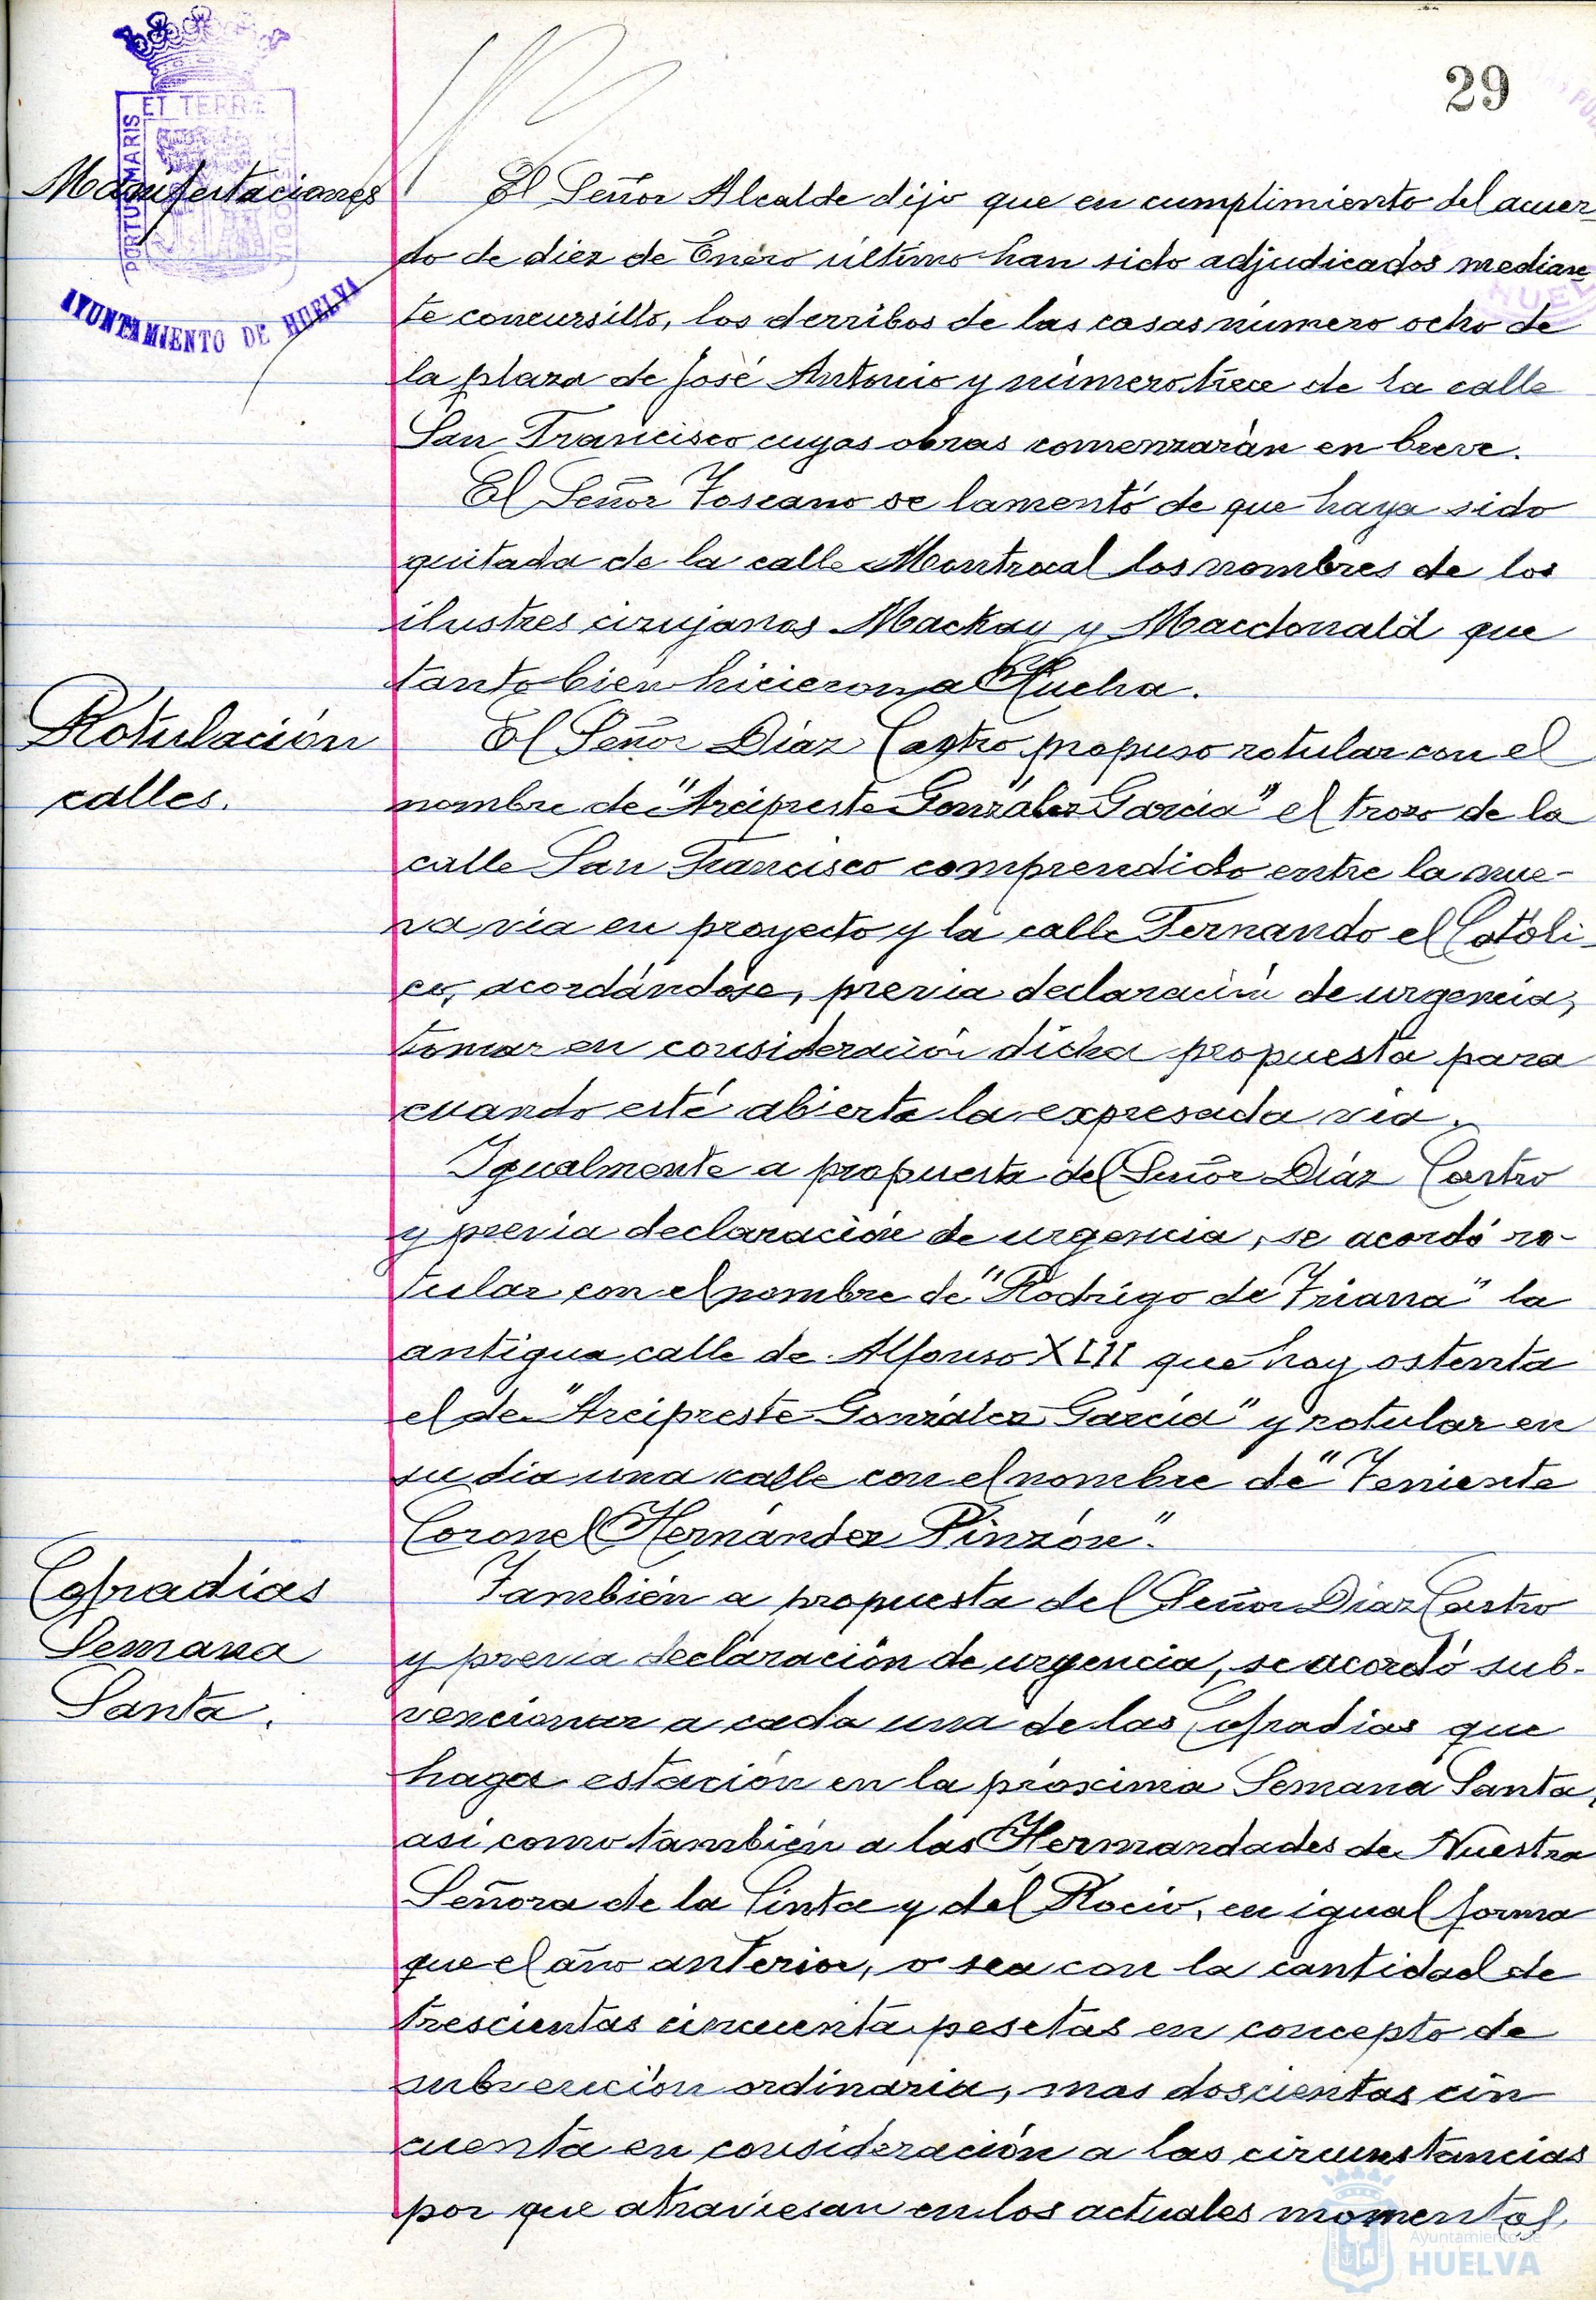 29
PORTUS MARIS
ET TERRÆ
AYUNTAMIENTO DE HUELVA
Manifestaciones
El Señor Alcalde dijo que en cumplimiento del acuer-
do de diez de Enero último han sido adjudicados median
te concursillo, los derribos de las casas número ocho de
la plaza de José Antonio y número trece de la calle
San Francisco cuyas obras comenzarán en breve.
El Señor Toscano se lamentó de que haya sido
quitada de la calle Montrocal los nombres de los
ilustres cirujanos Mackay y Macdonald que
tanto bien hicieron a Huelva.
Rotulación
calles.
El Señor Diaz Castro propuso rotular con el
nombre de "Arcipreste González García" el trozo de la
calle San Francisco comprendido entre la nue-
va via en proyecto y la calle Fernando el Católi-
co, acordándose, previa declaración de urgencia,
tomar en consideración dicha propuesta para
cuando esté abierta la expresada via.
Igualmente a propuesta del Señor Diaz Castro
y previa declaración de urgencia, se acordó ro-
tular con el nombre de "Rodrigo de Triana" la
antigua calle de Alfonso XIII que hoy ostenta
el de "Arcipreste González García" y rotular en
su dia una calle con el nombre de "Teniente
Coronel Hernández Pinzón".
Cofradias
Semana
Santa.
También a propuesta del Señor Diaz Castro
y previa declaración de urgencia, se acordó sub-
vencionar a cada una de las Cofradias que
haga estación en la próxima Semana Santa,
asi como también a las Hermandades de Nuestra
Señora de la Cinta y del Rocio, en igual forma
que el año anterior, o sea con la cantidad de
trescientas cincuenta pesetas en concepto de
subvención ordinaria, mas doscientas cin
cuenta en consideración a las circunstancias
por que atraviesan en los actuales momentos
Ayuntamiento de
HUELVA